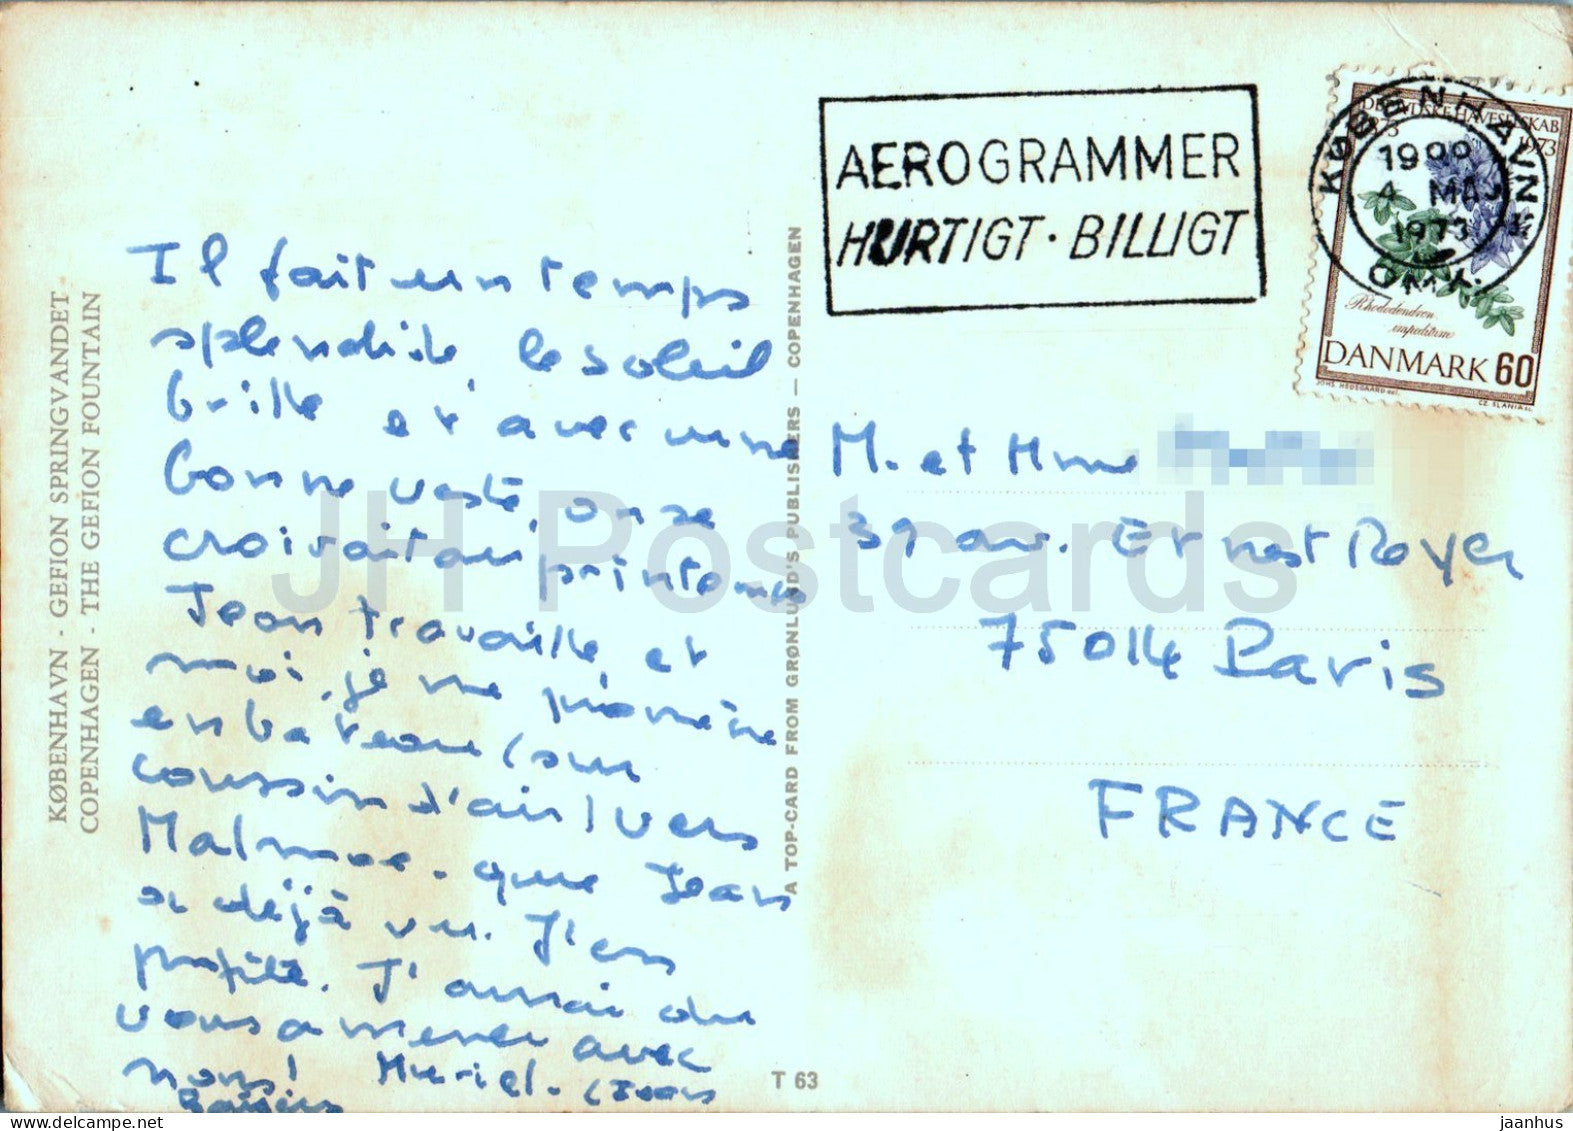 KØBENHAVN - GEFION SPRINGVANDET
COPENHAGEN - THE GEFION FOUNTAIN
Il fait un temps
splendide, le soleil
brille et avec une
bonne veste, on se
croirait au printemps
Jean travaille et
moi, je me promène
en bateau (sur
coussin d'air) vers
Malmoe. que Jean
a déjà vu. J'en
profite. J'aurai du
vous amener avec
nous! Muriel.
Baisers
A TOP-CARD FROM GRØNLUND'S PUBLISHERS — COPENHAGEN
T 63
AEROGRAMMER
HURTIGT · BILLIGT
KØBENHAVN
4 MAJ
1973
OMK.
HAVESELSKAB
1973
Rhododendron
impeditum
DANMARK 60
JOHS. HEDEGAARD del.
CZ. SLANIA sc.
M. et Mme
39 av. Ernest Reyer
75014 Paris
FRANCE
JH Postcards
jaanhus © delcampe.net